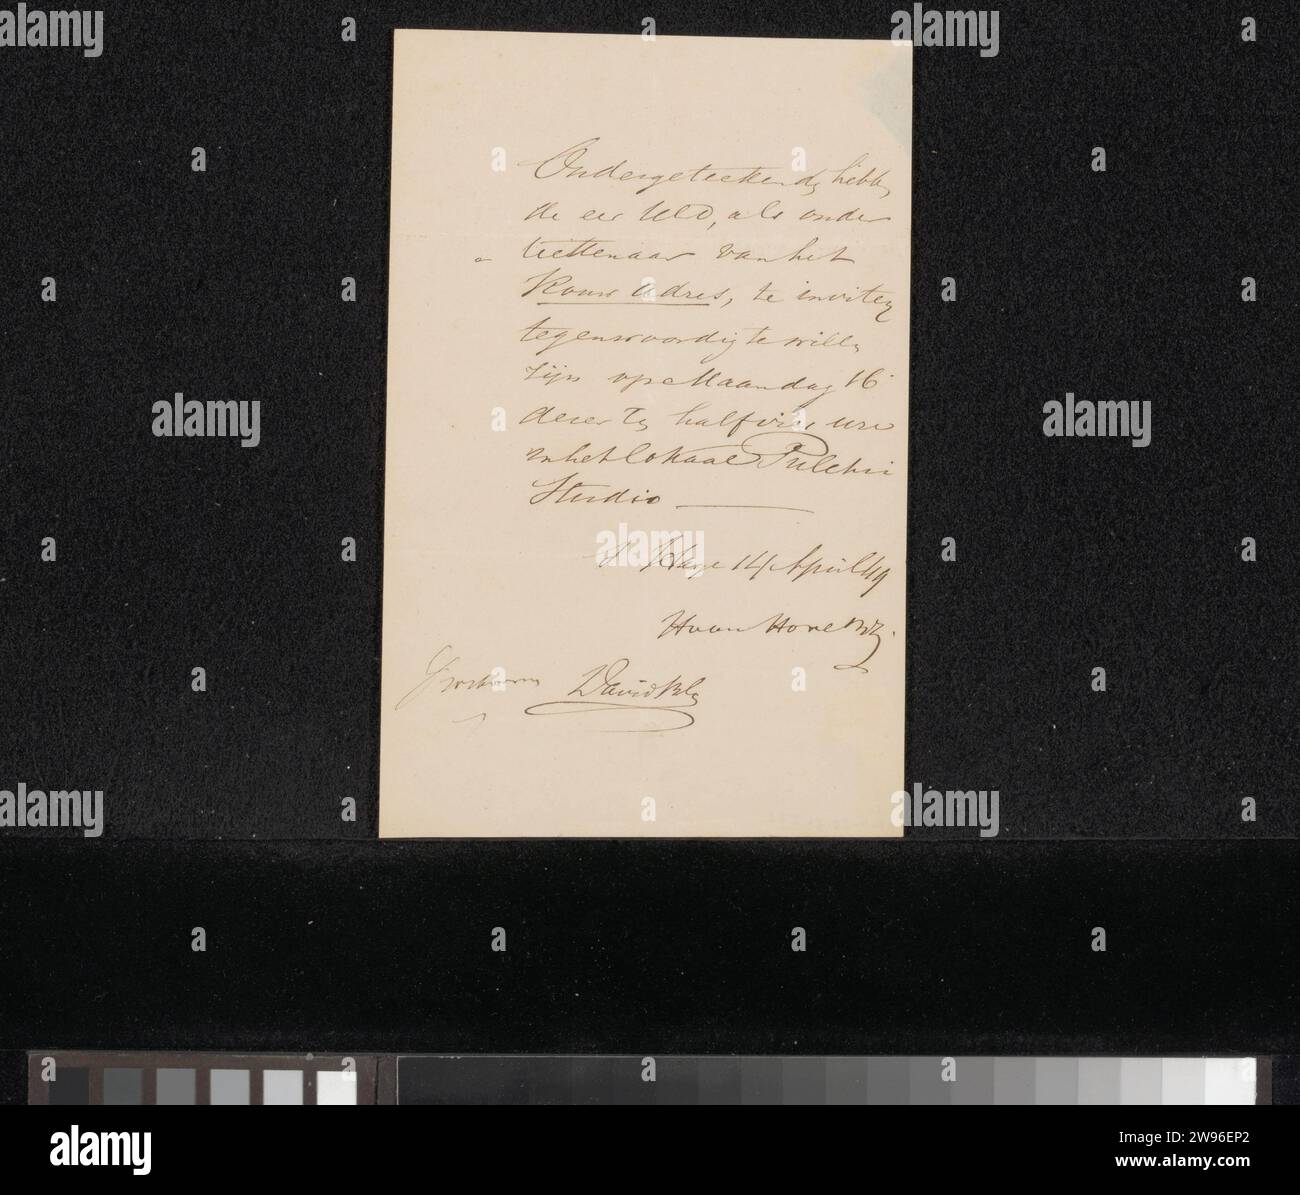 Ondergeteekenden hebben
de eer UEd, als onder
teekenaar van het
Rouw Adres, te inviteren
tegenwoordig te willen
zijn op Maandag 16
dezer te half vier ure
in het lokaal Pulchri
Studio
S Hage 14 April 49
H van Hove Bz.
David Bles
alamy
Image ID: 2W96EP2
www.alamy.com